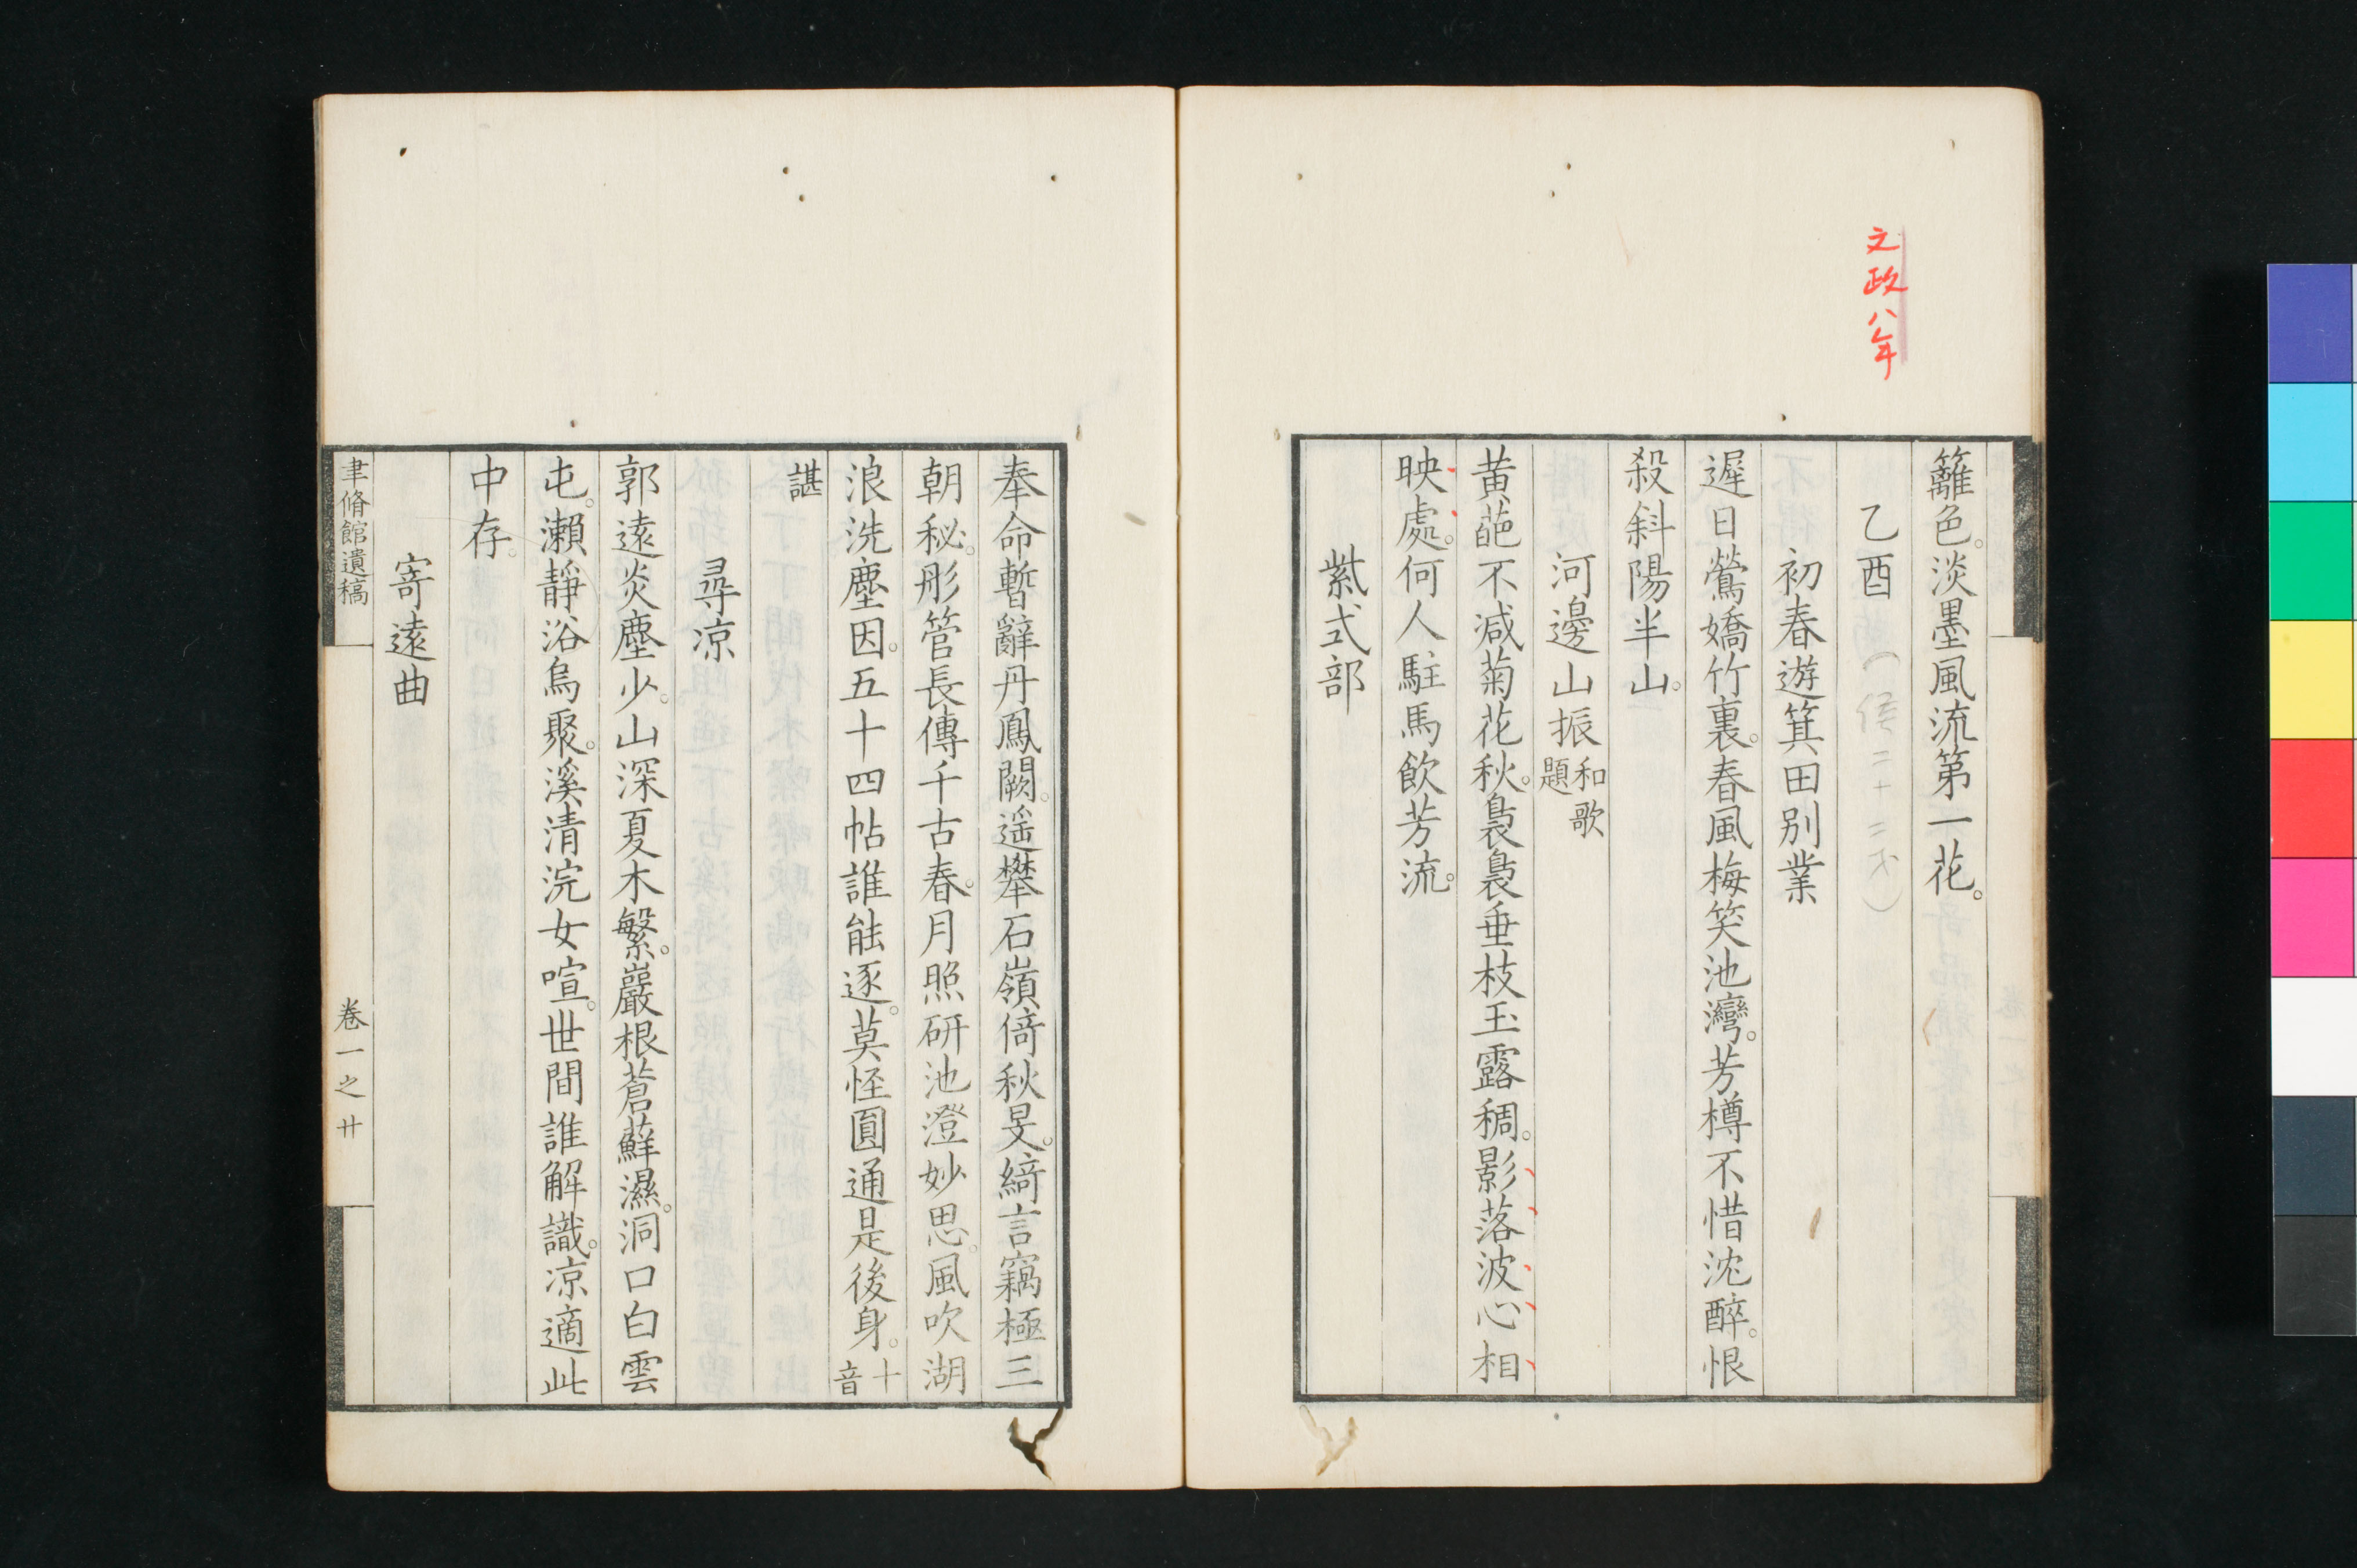 文政八年
籬色。淡墨風流第一花。
乙酉
初春遊箕田別業
遲日鶯嬌竹裏。春風梅笑池灣。芳樽不惜沈醉。恨
殺斜陽半山。
河邊山振和歌題
黃葩不減菊花秋。裊裊垂枝玉露稠。影落波心相
映處。何人駐馬飲芳流。
紫式部
奉命暫辭丹鳳闕。遥攀石嶺倚秋旻。綺言竊極三
朝秘。彤管長傳千古春。月照研池澄妙思。風吹湖
浪洗塵因。五十四帖誰能逐。莫怪圓通是後身。十音
諶
尋凉
郭遠炎塵少。山深夏木繁。巖根蒼蘚濕。洞口白雲
屯。瀨靜浴烏聚。溪清浣女喧。世間誰解識。凉適此
中存。
寄遠曲
聿脩館遺稿
卷一之廿